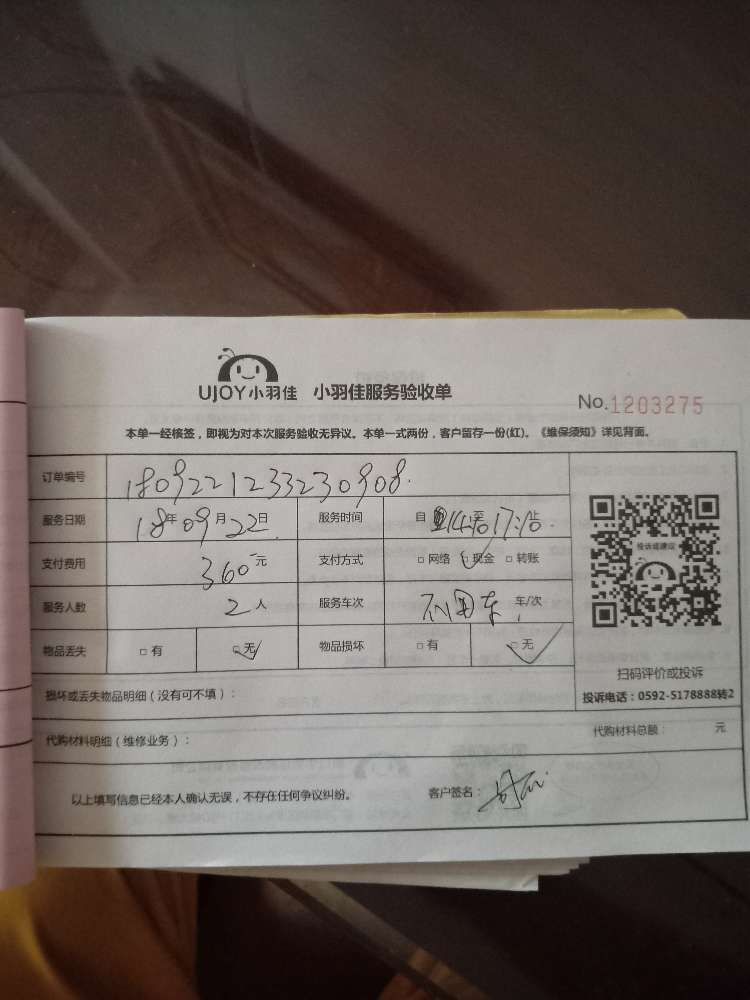 UJOY小羽佳 小羽佳服务验收单
No.1203275
本单一经核签，即视为对本次服务验收无异议。本单一式两份，客户留存一份(红)。《维保须知》详见背面。
订单编号 1809221233230908
服务日期 18年09月22日 服务时间 自 14 至 17: 止
支付费用 360元 支付方式 □网络 □现金 □转账
服务人数 2人 服务车次 不用车 车/次
物品丢失 □有 □无 物品损坏 □有 □无
投诉或建议
扫码评价或投诉
投诉电话：0592-5178888转2
损坏或丢失物品明细（没有可不填）：
代购材料明细（维修业务）： 代购材料总额： 元
以上填写信息已经本人确认无误，不存在任何争议纠纷。 客户签名：